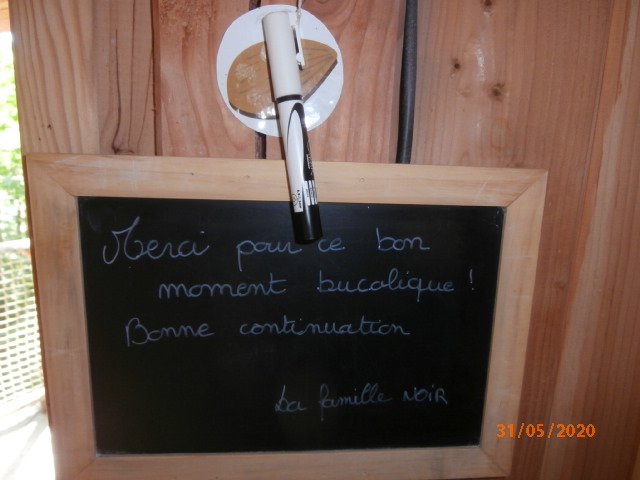 Merci pour ce bon
moment bucolique !
Bonne continuation
La famille NOIR
31/05/2020